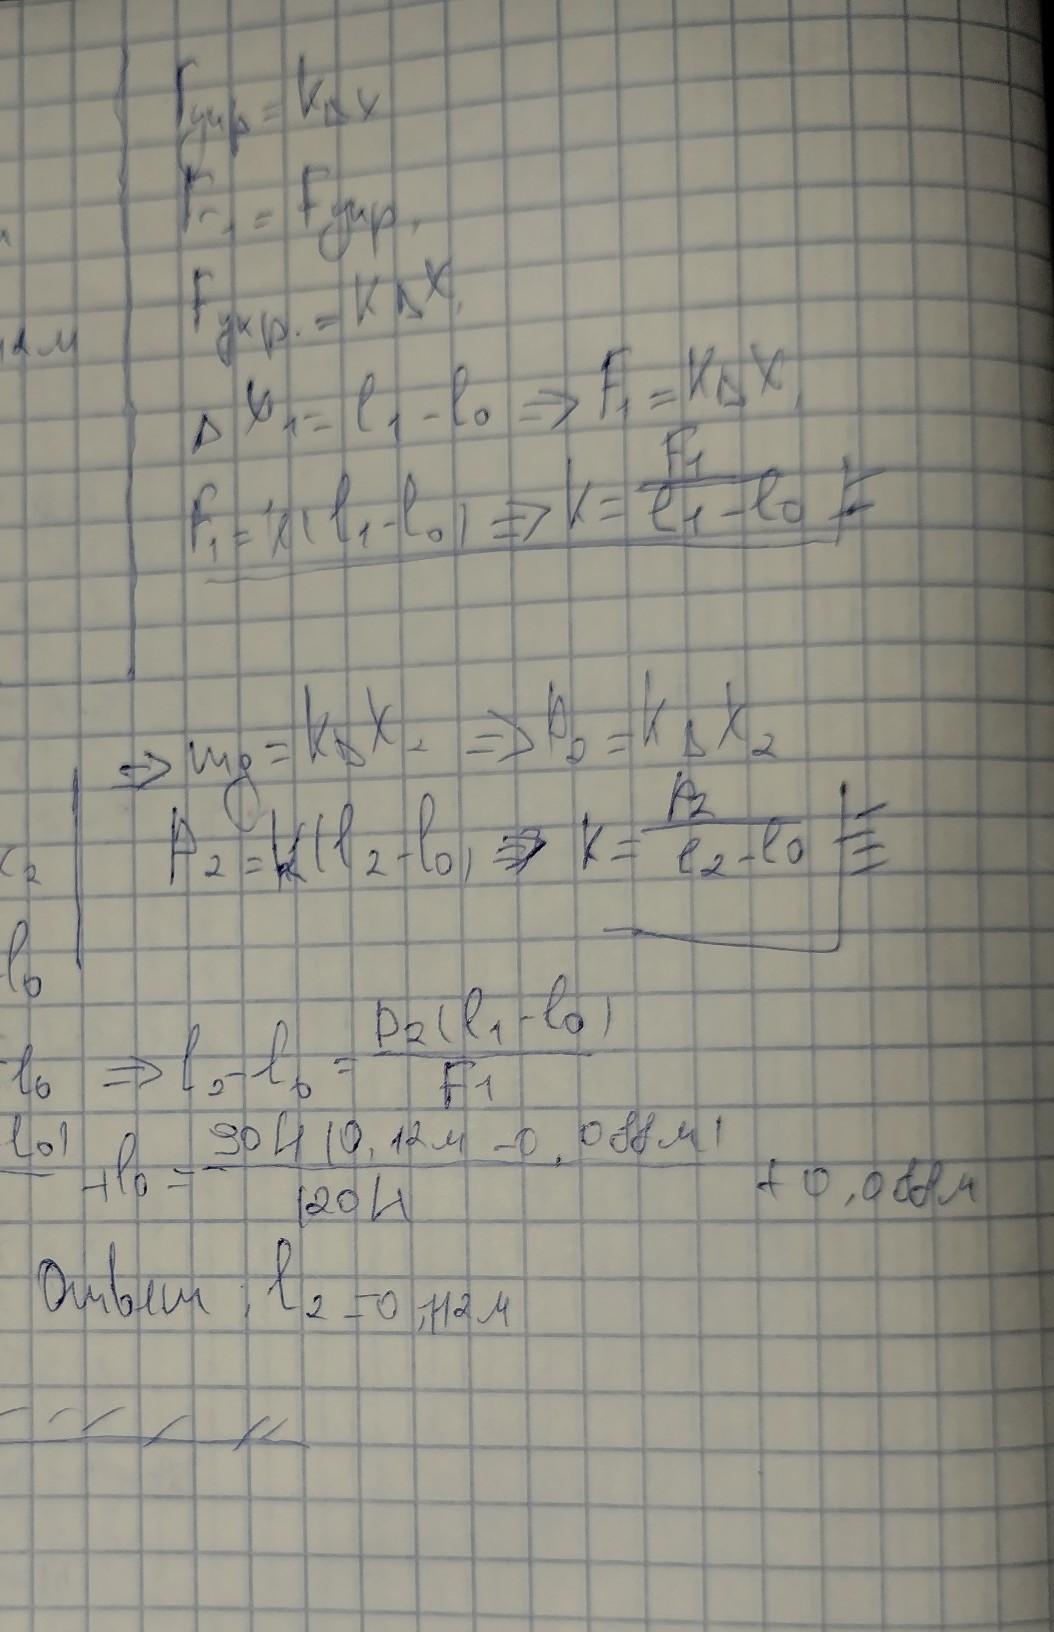 Fупр = kΔx
F₁ = Fупр.
Fупр. = kΔx₁
,12м
Δx₁ = l₁ - l₀ => F₁ = kΔx₁
F₁ = k(l₁ - l₀) => k = F₁/(l₁ - l₀)
=> mg = kΔx₂ => P₂ = kΔx₂
x₂ P₂ = k(l₂ - l₀) => k = P₂/(l₂ - l₀)
l₀
-l₀ => l₂ - l₀ = P₂(l₁ - l₀)/F₁
l₀) + l₀ = 90Н(0,12м - 0,088м)/120Н + 0,088м
Ответ: l₂ = 0,112м